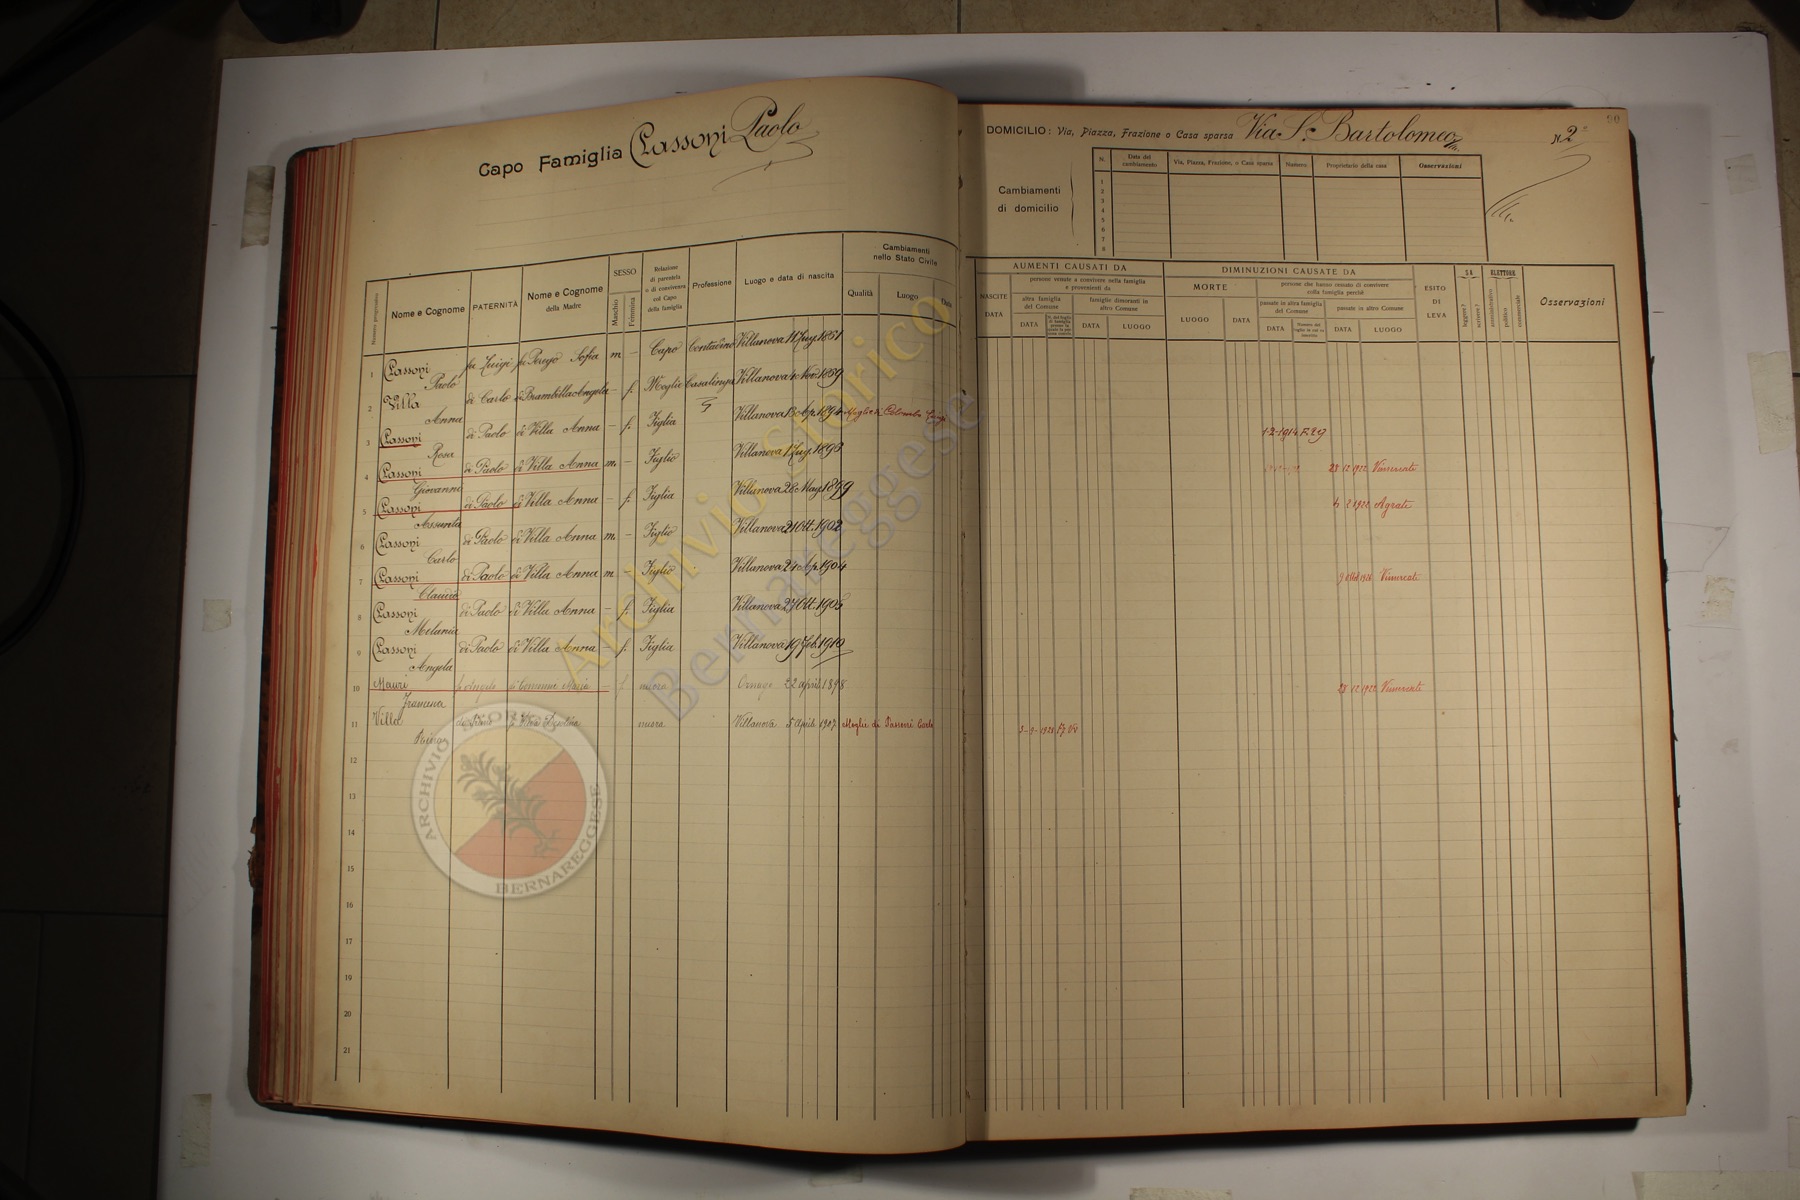 Capo Famiglia Passoni Paolo
Numero progressivo
Nome e Cognome
PATERNITÀ
Nome e Cognome
della Madre
SESSO
Maschio
Femmina
Relazione
di parentela
o di convivenza
col Capo
della famiglia
Professione
Luogo e data di nascita
Cambiamenti
nello Stato Civile
Qualità
Luogo
Data
1 Passoni fu Luigi fu Perego Sofia m – Capo Contadino Villanova 11 Lug. 1851
Paolo
2 Villa di Carlo di Brambilla Angela – f. Moglie Casalinga Villanova 4 Nov. 1859
Anna
3 Passoni di Paolo di Villa Anna – f. Figlia Villanova 13 Ap. 1894 Moglie di Colombo Luigi
Rosa
4 Passoni di Paolo di Villa Anna m. – Figlio Villanova 1 Lug. 1893
Giovanni
5 Passoni di Paolo di Villa Anna – f. Figlia Villanova 28 Mag. 1899
Assunta
6 Passoni di Paolo di Villa Anna m. – Figlio Villanova 21 Ott. 1902
Carlo
7 Passoni di Paolo di Villa Anna m – Figlio Villanova 24 Ap. 1904
Claudio
8 Passoni di Paolo di Villa Anna – f. Figlia Villanova 27 Ott. 1905
Melania
9 Passoni di Paolo di Villa Anna – f. Figlia Villanova 19 Feb. 1910
Angela
10 Mauri fu Angelo di Maria – f. nuora Ornago 22 aprile 1898
Francesca
11 Villa nuora Villanova 5 Aprile 1907 Moglie di Passoni Carlo
12
13
14
15
16
17
18
19
20
21
90
DOMICILIO: Via, Piazza, Frazione o Casa sparsa Via S. Bartolomeo N 2
Cambiamenti
di domicilio
N.
Data del
cambiamento
Via, Piazza, Frazione, o Casa sparsa
Numero
Proprietario della casa
Osservazioni
1
2
3
4
5
6
7
8
AUMENTI CAUSATI DA
NASCITE
DATA
persone venute a convivere nella famiglia
e provenienti da
altra famiglia
del Comune
DATA
famiglie dimoranti in
altro Comune
DATA
LUOGO
DIMINUZIONI CAUSATE DA
MORTE
LUOGO
DATA
persone che hanno cessato di convivere
colla famiglia perchè
passate in altra famiglia
del Comune
DATA
passate in altro Comune
DATA
LUOGO
ESITO
DI
LEVA
SA
leggere?
scrivere?
ELETTORE
amministrativo
politico
commerciale
Osservazioni
1-2-1914 F. 29
28 12 1922 Vimercate
4 2 1922 Agrate
Vimercate
28 12 1922 Vimercate
Archivio Storico
Bernareggese
ARCHIVIO STORICO
BERNAREGGESE